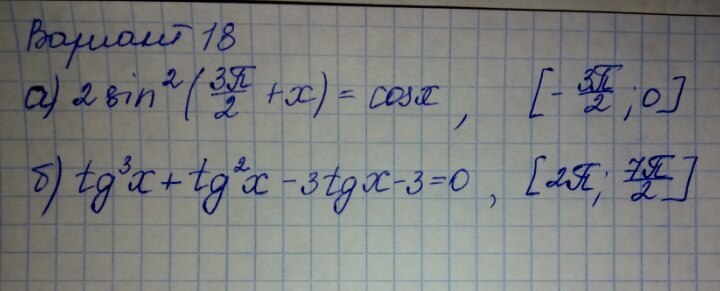 Вариант 18
а) 2 sin² (3π/2 + x) = cosx, [-3π/2; 0]
б) tg³x + tg²x - 3tgx - 3 = 0, [2π; 7π/2]